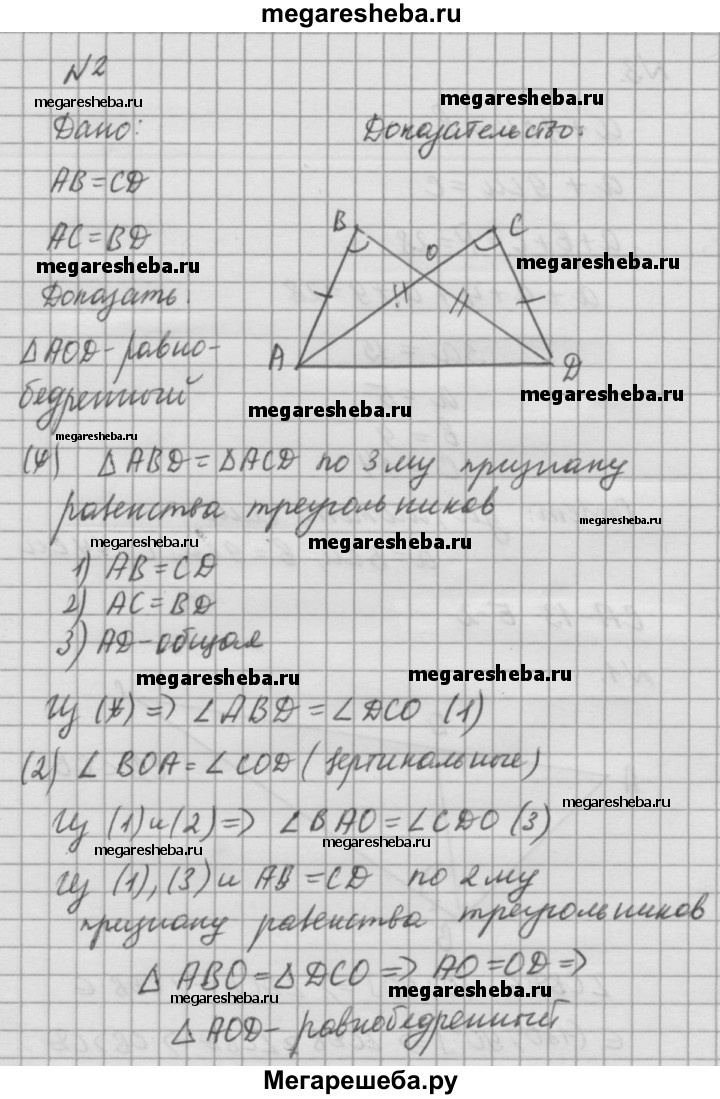 megaresheba.ru
N2
megaresheba.ru
megaresheba.ru
Дано:
Доказательство:
AB=CD
AC=BD
B
C
O
megaresheba.ru
megaresheba.ru
Доказать:
A
D
△AOD-равно-
бедренный
megaresheba.ru
megaresheba.ru
megaresheba.ru
(*) △ABD=△ACD по 3му признаку
равенства треугольников
megaresheba.ru
megaresheba.ru
megaresheba.ru
1) AB=CD
2) AC=BD
3) AD-общая
megaresheba.ru
megaresheba.ru
Из (*) => ∠ABD=∠DCO (1)
(2) ∠BOA=∠COD (вертикальные)
megaresheba.ru
Из (1) и (2) => ∠BAO=∠CDO (3)
megaresheba.ru
megaresheba.ru
Из (1), (3) и AB=CD по 2му
признаку равенства треугольников
△ABO=△DCO => AO=OD =>
megaresheba.ru
megaresheba.ru
△AOD-равнобедренный
Мегарешеба.ру